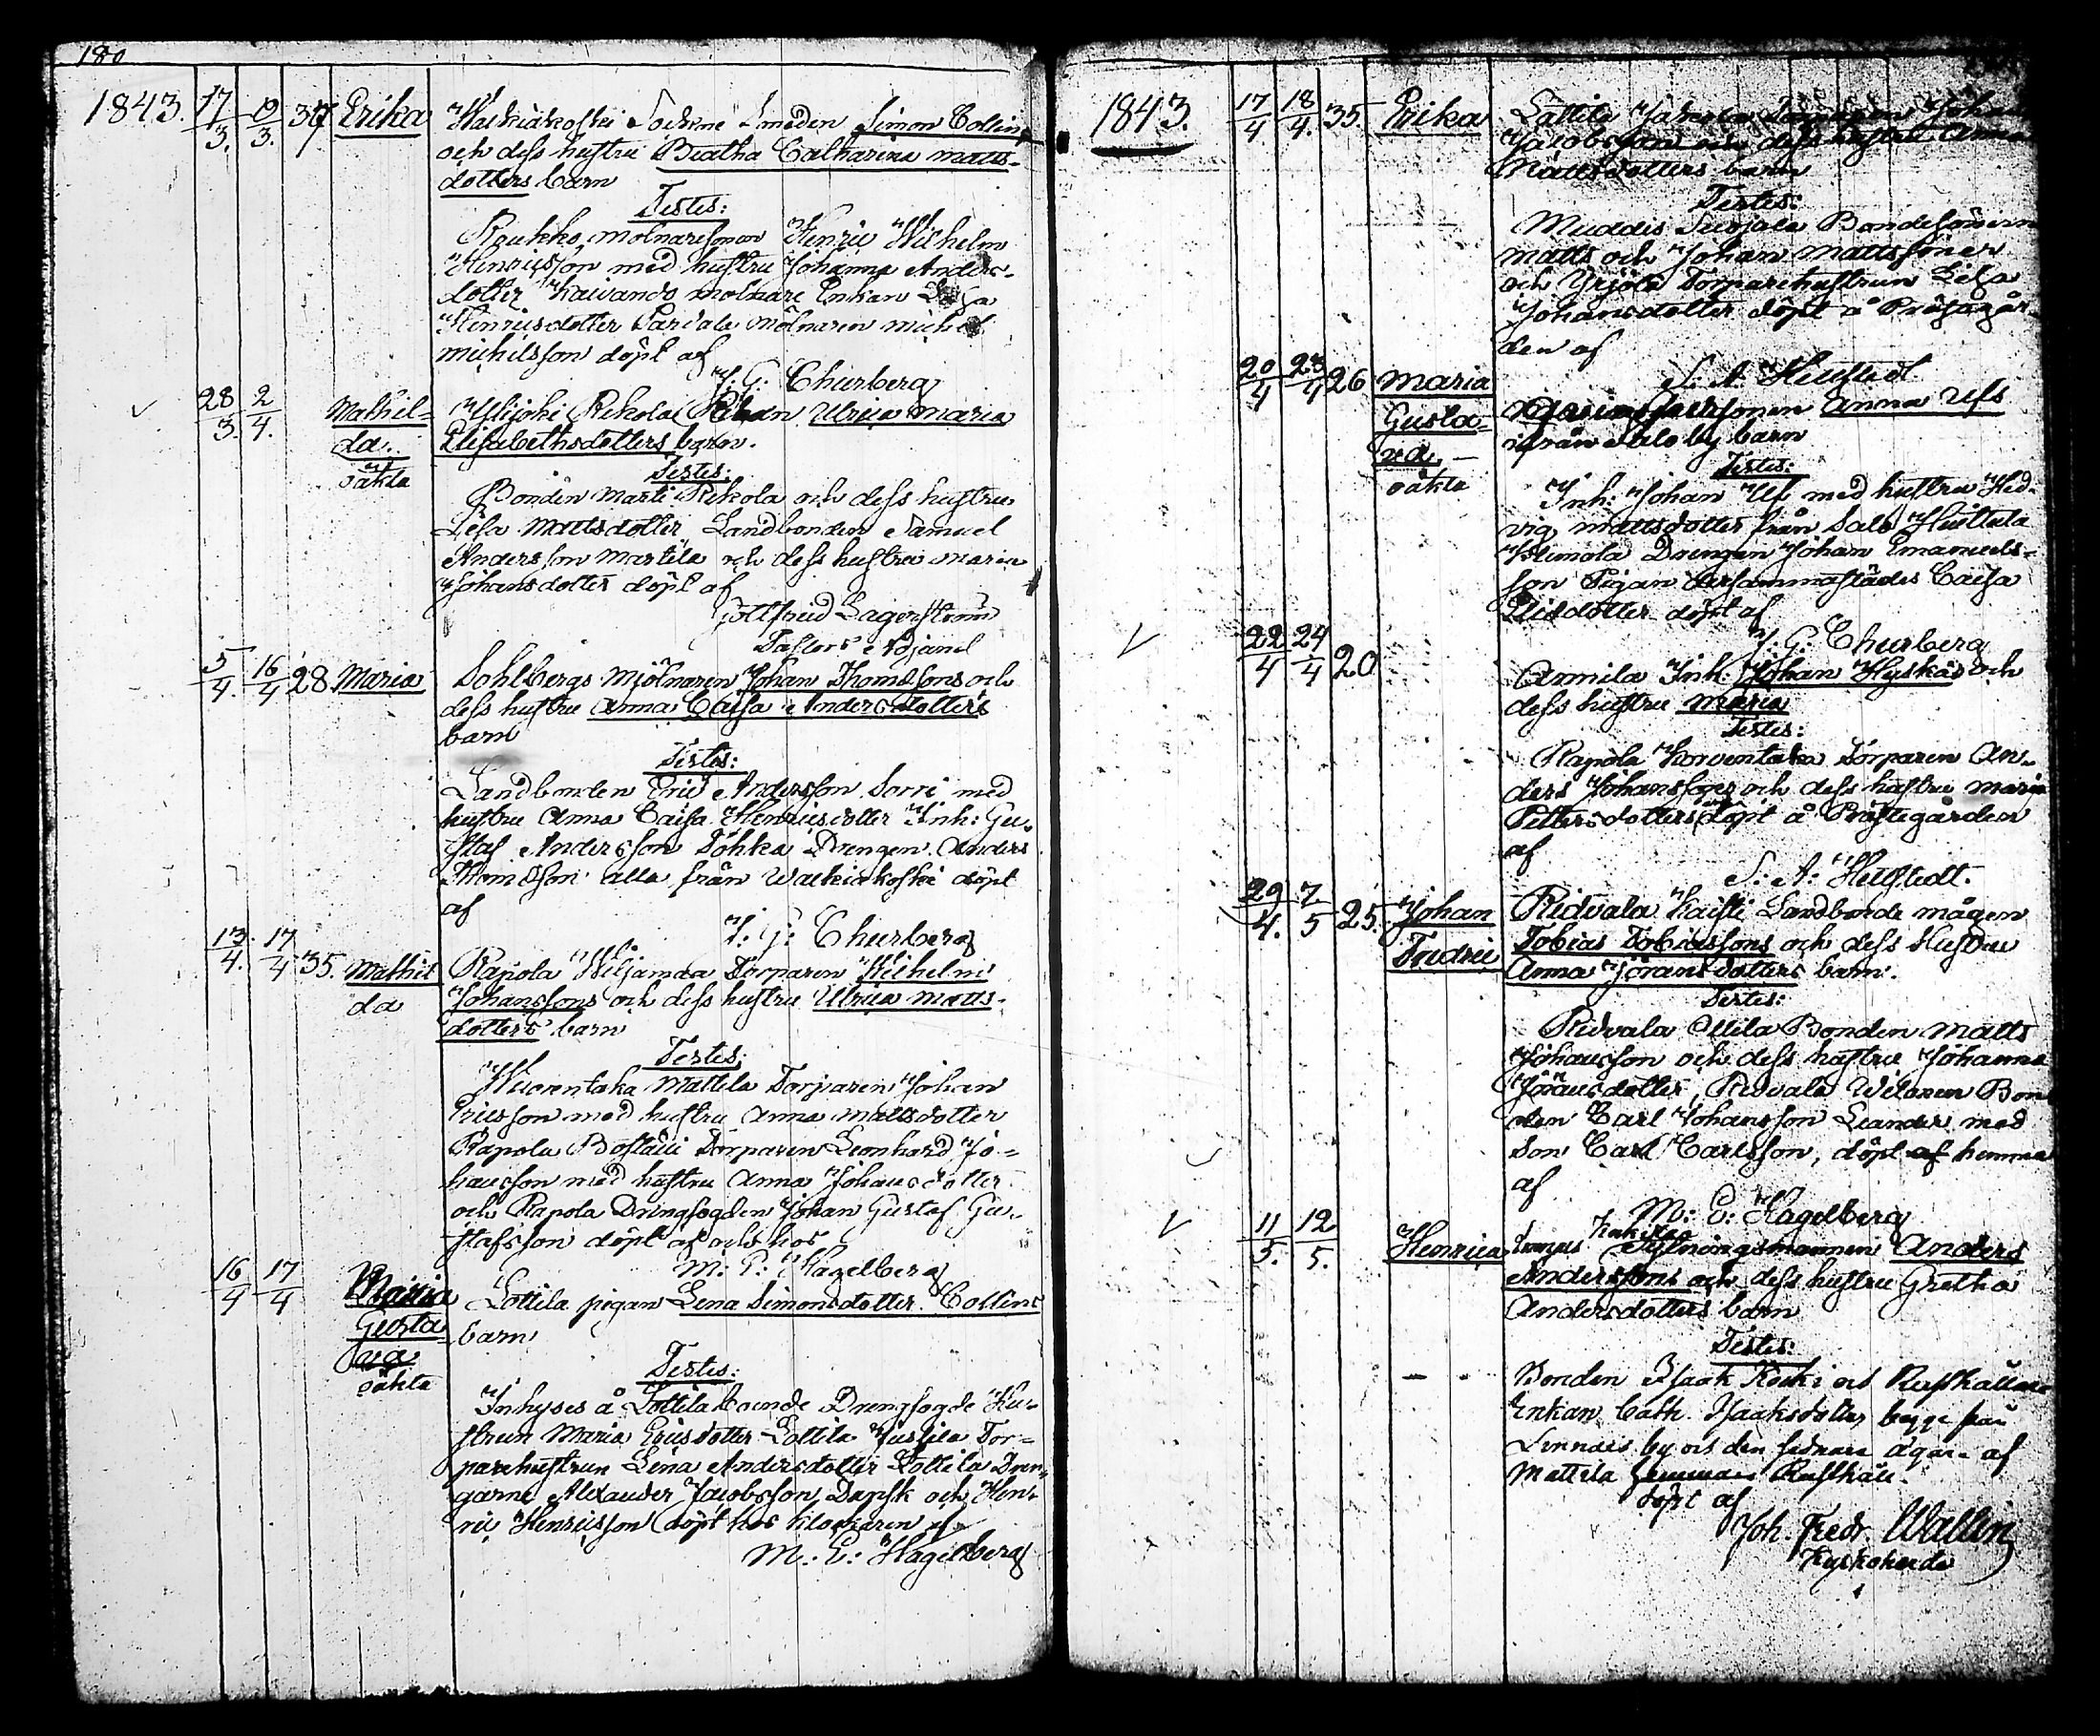 180
1843. 17/3. 19/3. 37 Erika Waskiakoski Sockne Smeden Simon Collins
och dess hustru Beatha Catharina Matts-
dotters barn
Testes:
Roukko molnaresonen Henric Wilhelm
Henricsson med hustru Johanna Anders-
dotter Kaivando molnare Enkan Lisa
Henricsdotter Pardala mölnaren Michel
Michilsson döpt af
J: G: Churberg
28/3. 2/4. Mathil- Ylijoki Rekola Pigan Ulrica Maria
da. Elisabethsdotters barn.
oäkta Testes:
Bonden Marti Rekola och dess hustru
Lisa Mattsdotter, Landbonden Samuel
Andersson Martila och dess hustru Maria
Johansdotter döpt af
Gottfried Lagerström
Pastors Adjunct
5/4. 16/4 28 Maria Sohlbergs Mjölnaren Johan Thomassons och
dess hustru Anna Caisa Andersdotters
barn
Testes:
Landbonden Eric Andersson Sorri med
hustru Anna Caisa Henricsdotter Inh: Gu-
staf Andersson Töhka Drengen Anders
Thomasson alla från Walkiakoski döpt
af
J: G: Churberg
13/4. 17/4 35. Mathil Rapola Wiljamaa Torparen Wilhelm
da Johanssons och dess hustru Ulrica Matts-
dotters barn
Testes:
Wuorentaka Mattila Torparen Johan
Ericsson med hustru Anna Mattsdotter
Rapola Torparen Leonhard Jo-
hansson med hustru Anna Johansdotter
och Rapola Drengfogden Johan Gustaf Gu-
stafsson döpt af och hos
M: E: Hagelberg
16/4 17/4 Maria Lottila pigan Lena Simonsdotter Collins
Gusta- barn
va
oäkta Testes:
Inhyses å Lottila boende Drengfogde Hu-
strun Maria Ericsdotter Lottila Jussila Tor-
parehustrun Lena Andersdotter Lottila Dren-
garne Alexander Jacobsson Dapsk och Hen-
ric Henricsson döpt hos klockaren af
M: E: Hagelberg
1843. 17/4 18/4. 35. Erika Lottila Johan
Jacobsson och dess hustru Anna
Mattsdotters barn
Testes:
Muddis Bondesönerna
Matts och Johan Mattssöner
och Yrjölä Torparehustrun Lisa
Johansdotter döpt å Prästgår-
den af
S: A: Hellstedt
20/4 23/4 26 Maria Anna Ulfs
Gusta- ifrån by barn
va
oäkta Testes:
Inh: Johan Ulf med hustru Hed-
vig Mattsdotter från Salo Huittula
Klemola Drengen Johan Emanuels-
son Pigan dersammastädes Caisa
döpt af
J: G: Churberg
22/4 24/4 20 Annila Inh: Johan Hyskas och
dess hustru Maria
Testes:
Rapola Torparen An-
ders Johansson och dess hustru Maria
Pettersdotters döpt å Prästegården
af
S: A: Hellstedt.
29/4. 7/5 25. Johan Ridvala Kaisti Landbonde mågen
Fredric Tobias Tobiassons och dess Hustru
Anna Jöransdotters barn.
Testes:
Ridvala Ollila Bonden Matts
Johansson och dess hustru Johanna
Jöransdotter, Ridvala Bon
den Carl Johansson Leander med
Son Carl Carlsson, döpt af hemma
af
M: E: Hagelberg
11/5. 12/5. Henrica Anders
Anderssons och dess hustru Gretha
Andersdotters barn
Testes:
Bonden Isaak och Rusthållare
Enkan Cath. Isaaksdotter begge från
by och den sednare ägare af
Mattila hemmans Rusthåll.
döpt af
Joh. Fredr. Wallin
Kyrkoherde